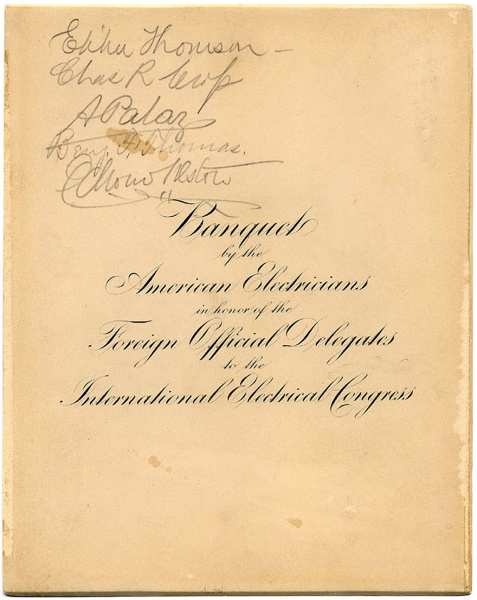 Elihu Thomson –
Chas R Cross
A Palaz
Benj. F. Thomas.
Banquet
by the
American Electricians
in honor of the
Foreign Official Delegates
to the
International Electrical Congress